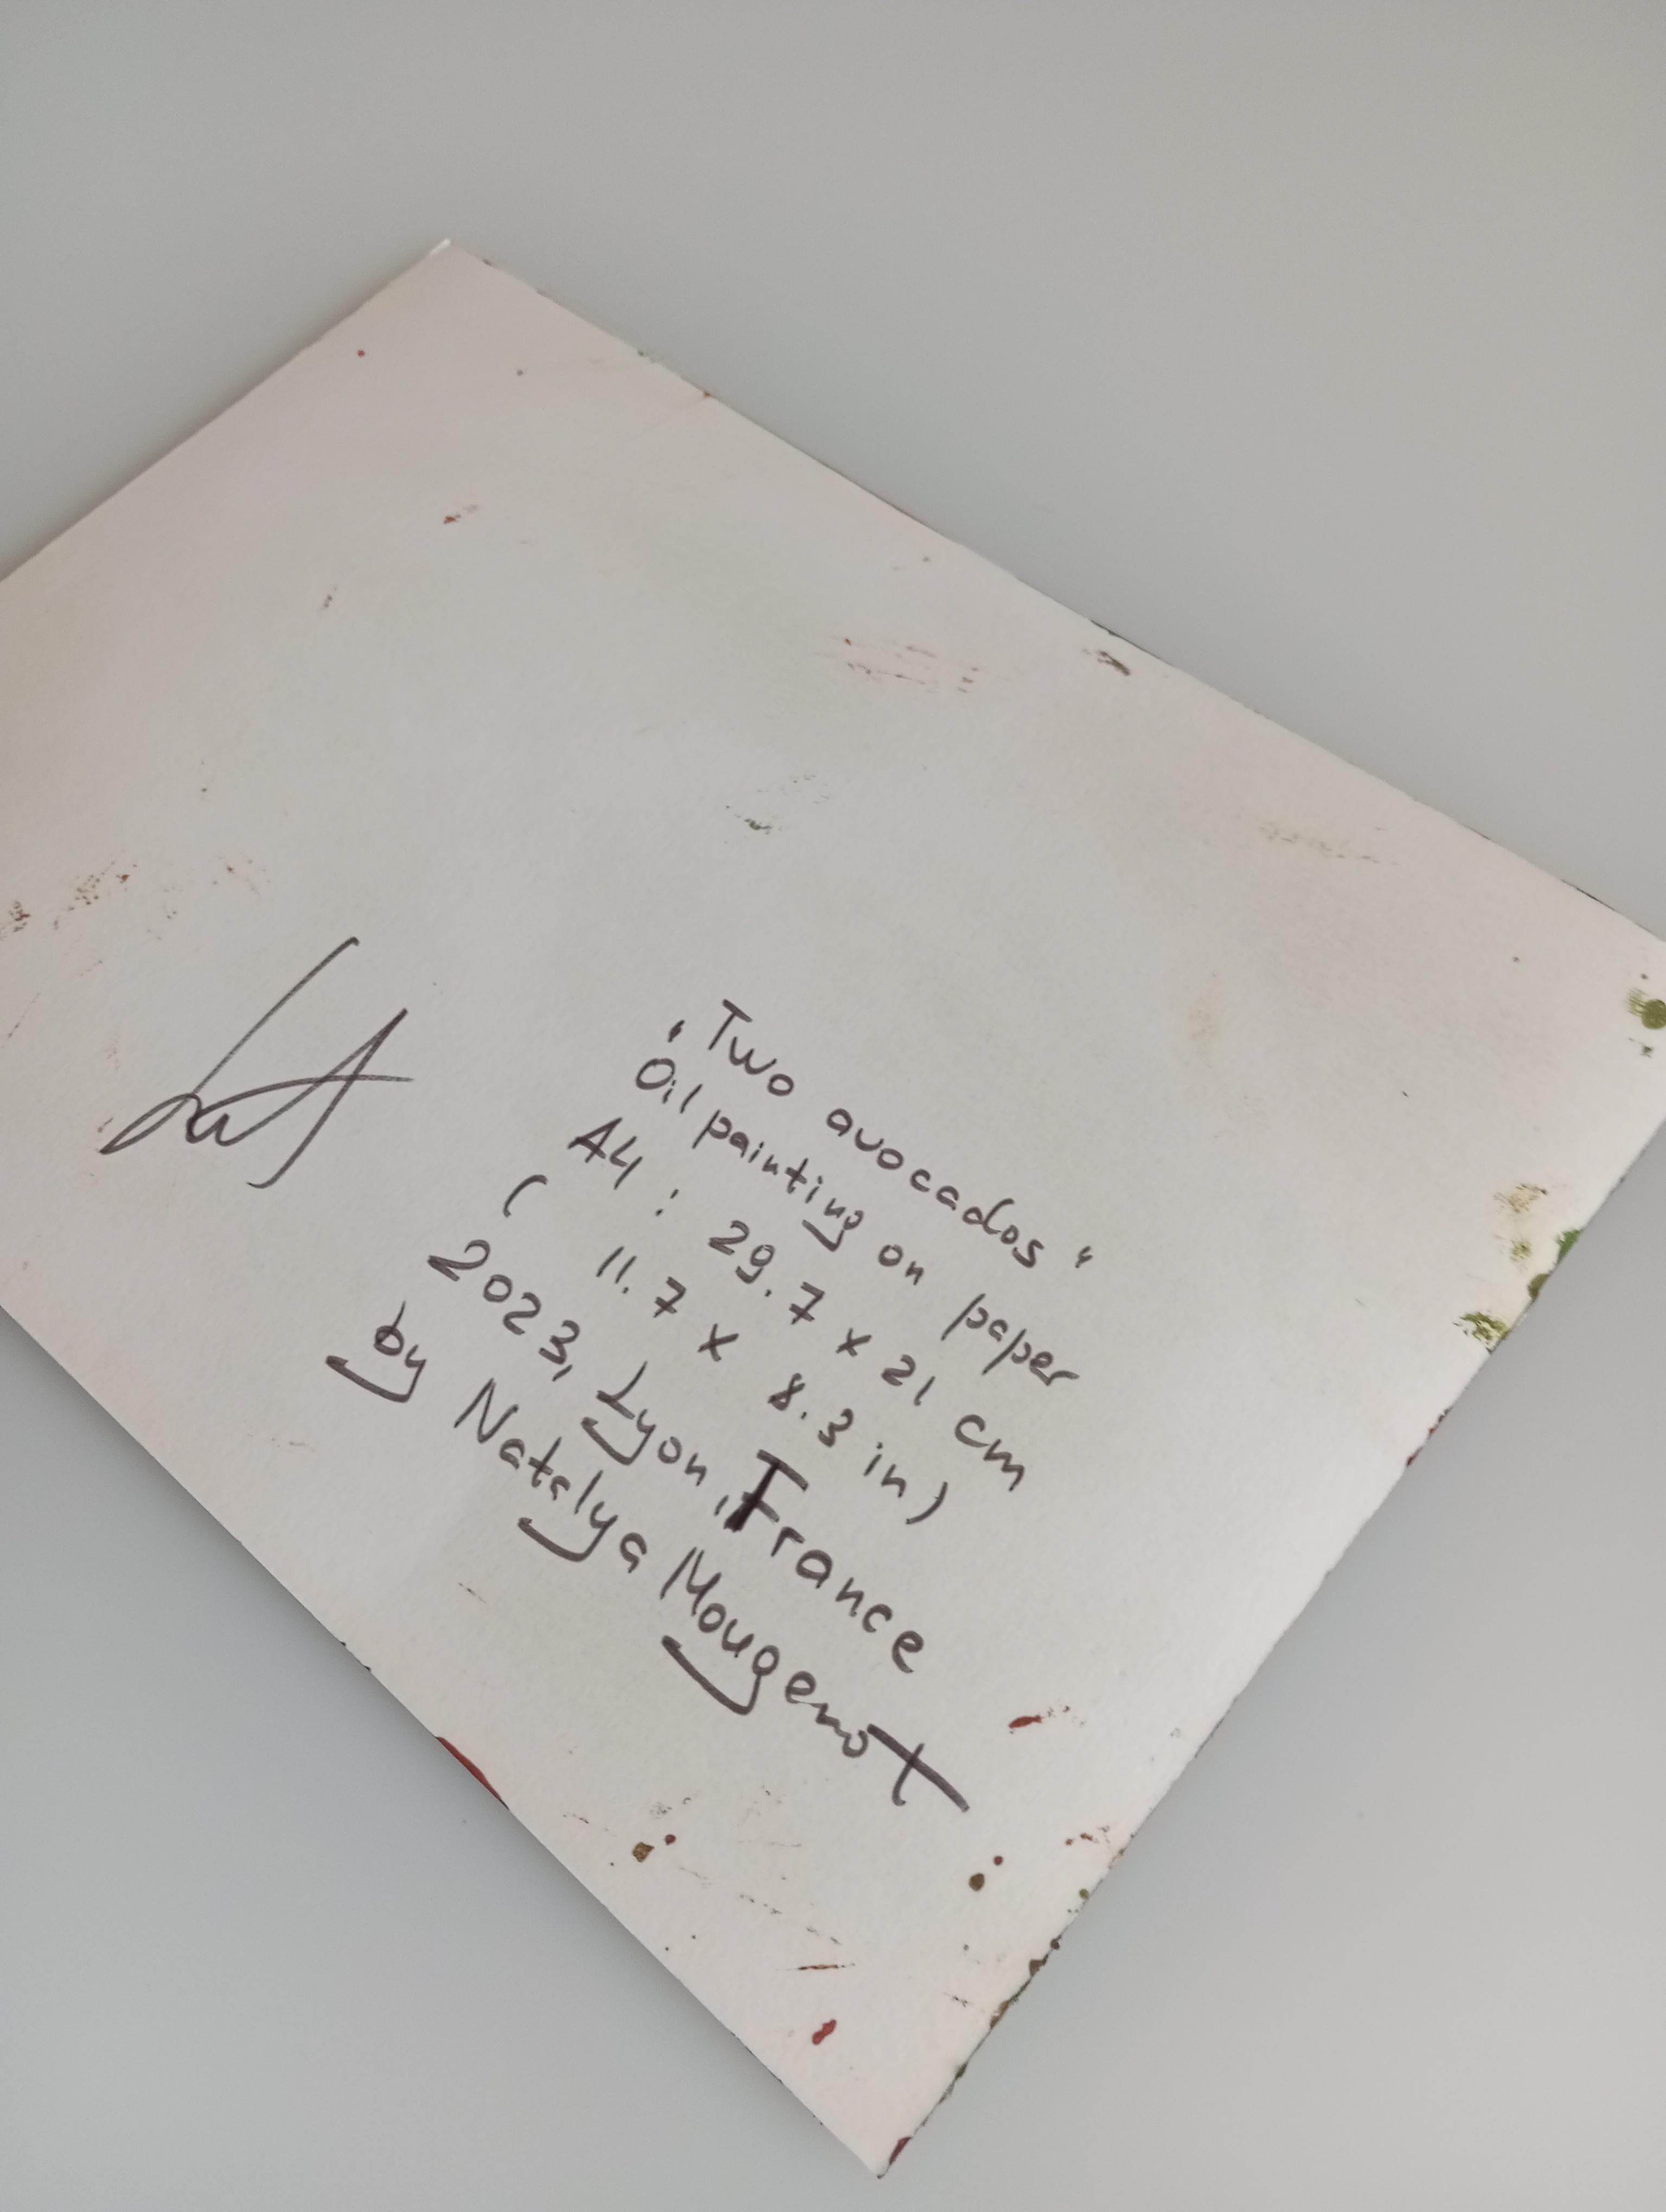 "Two avocados"
Oil painting on paper
A4 : 29.7 x 21 cm
( 11.7 x 8.3 in)
2023, Lyon, France
by Natalya Mougenot